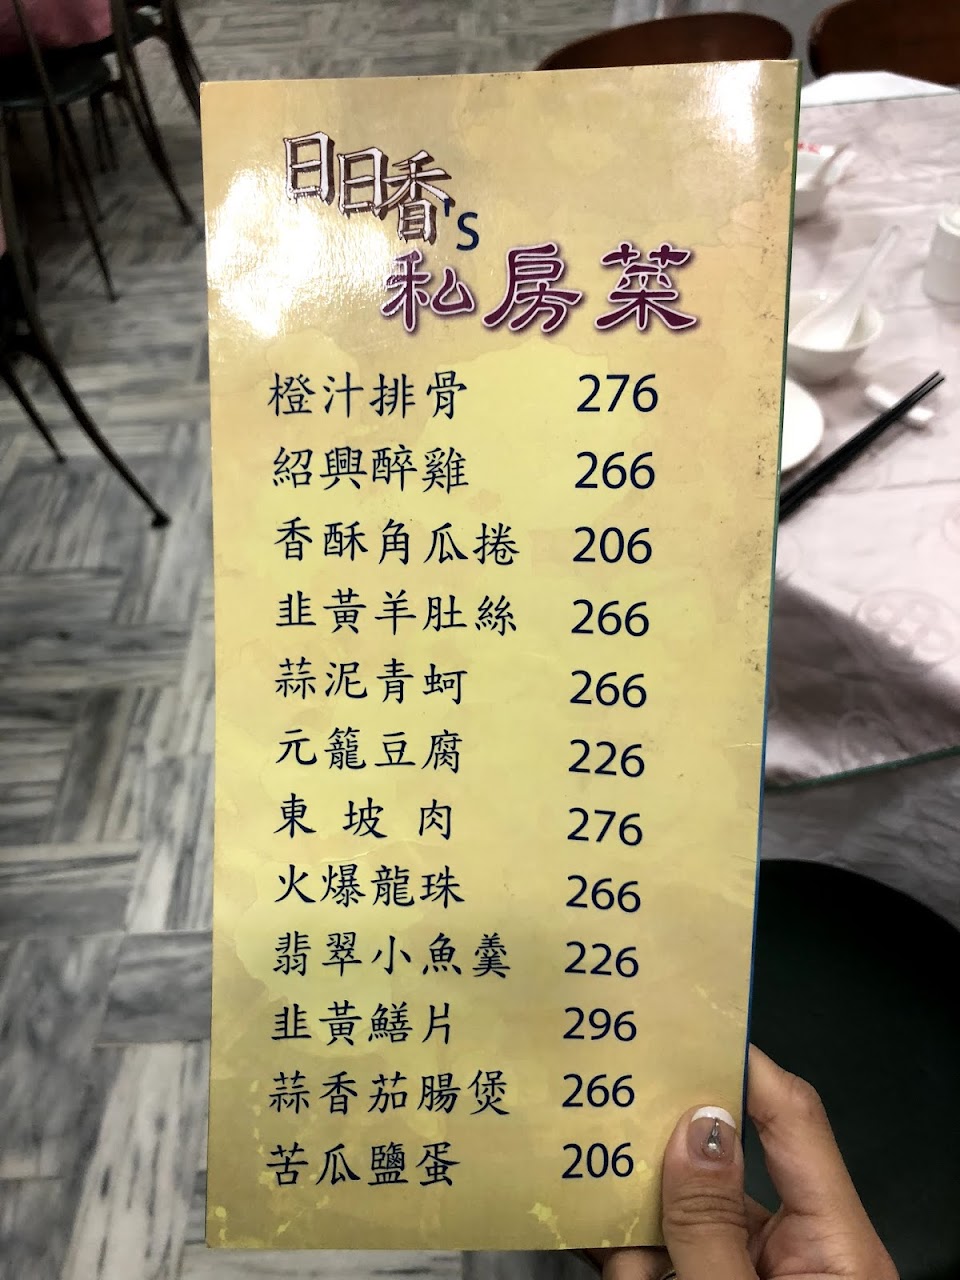 日日香's
私房菜
橙汁排骨 276
紹興醉雞 266
香酥角瓜捲 206
韭黃羊肚絲 266
蒜泥青蚵 266
元籠豆腐 226
東坡肉 276
火爆龍珠 266
翡翠小魚羹 226
韭黃鱔片 296
蒜香茄腸煲 266
苦瓜鹽蛋 206